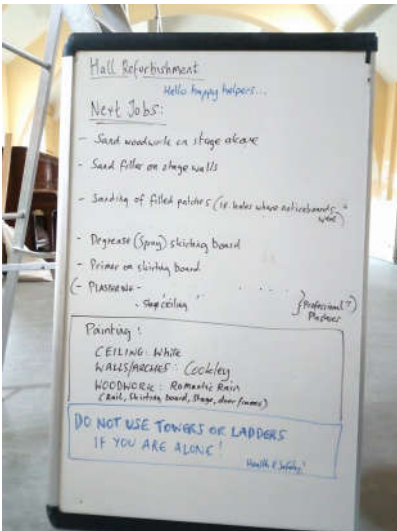 Hall Refurbishment
Hello happy helpers...
Next Jobs:
- Sand woodwork on stage alcove
- Sand filler on stage walls
- Sanding of filled patches (ie. holes where noticeboards
were)
- Degrease (Spray) skirting board
- Primer on skirting board
(- PLASTERING -
- Stage ceiling
} Professional?)
Plasterer
Painting:
CEILING: White
WALLS/ARCHES: Cookley
WOODWORK: Romantic Rain
(Rail, skirting board, Stage, door frames)
DO NOT USE TOWERS OR LADDERS
IF YOU ARE ALONE!
Health & Safety!